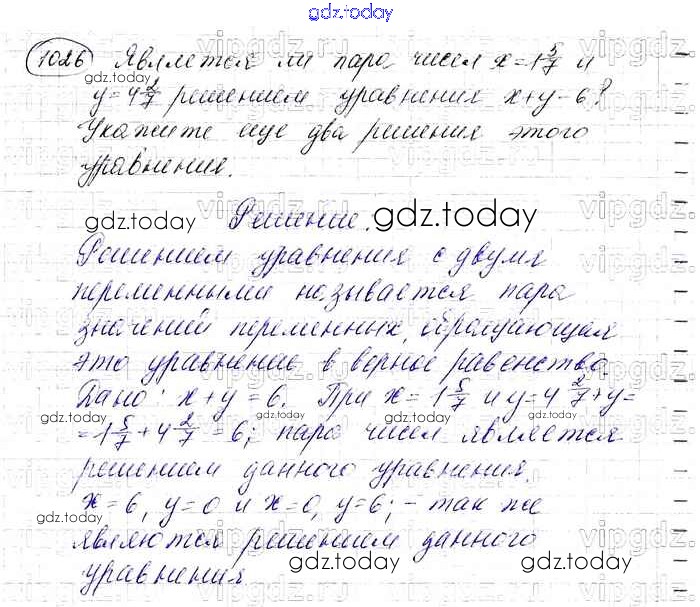 gdz.today
1026 Является ли пара чисел x=1 5/7 и
y=4 2/7 решением уравнения x+y=6?
Укажите еще два решения этого
уравнения.
gdz.today
Решение.
gdz.today
Решением уравнения с двумя
переменными называется пара
значений переменных, обращающая
это уравнение в верное равенство.
Дано: x+y=6. При x=1 5/7 и y=4 2/7 x+y=
=1 5/7+4 2/7=6; пара чисел является
решением данного уравнения.
x=6, y=0 и x=0, y=6; - так же
являются решением данного
уравнения
gdz.today
vipgdz.today